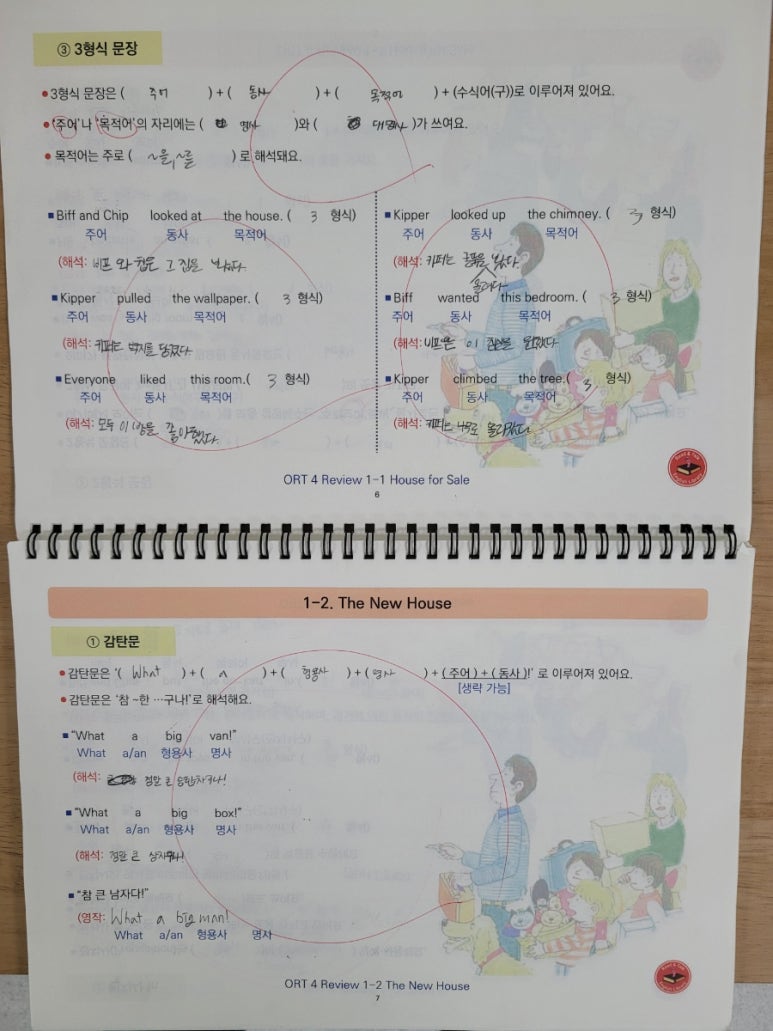 ③ 3형식 문장
• 3형식 문장은 ( 주어 ) + ( 동사 ) + ( 목적어 ) + (수식어(구))로 이루어져 있어요.
• '주어'나 '목적어'의 자리에는 ( 명사 )와 ( 대명사 )가 쓰여요.
• 목적어는 주로 ( ~을, ~를 ) 로 해석돼요.
■ Biff and Chip looked at the house. ( 3 형식)
주어 동사 목적어
(해석: 비프 와 칩은 그 집을 봤다.
■ Kipper pulled the wallpaper. ( 3 형식)
주어 동사 목적어
(해석: 키퍼는 벽지를 당겼다.
■ Everyone liked this room. ( 3 형식)
주어 동사 목적어
(해석: 모두 이 방을 좋아했다.
■ Kipper looked up the chimney. ( 3 형식)
주어 동사 목적어
(해석: 키퍼는 굴뚝을 봤다.
올려다
■ Biff wanted this bedroom. ( 3 형식)
주어 동사 목적어
(해석: 비프은 이 침실을 원했다.
■ Kipper climbed the tree. ( 3 형식)
주어 동사 목적어
(해석: 키퍼는 올라갔다.
ORT 4 Review 1-1 House for Sale
6
1-2. The New House
① 감탄문
• 감탄문은 '( What ) + ( a ) + ( 형용사 ) + ( 명사 ) + ( 주어 ) + ( 동사 )!' 로 이루어져 있어요.
[생략 가능]
• 감탄문은 '참 ~한 …구나!'로 해석해요.
■ "What a big van!"
What a/an 형용사 명사
(해석: 정말 큰 승합차구나!
■ "What a big box!"
What a/an 형용사 명사
(해석: 정말 큰 상자구나!
■ "참 큰 남자다!"
(영작: What a big man!
What a/an 형용사 명사
ORT 4 Review 1-2 The New House
7